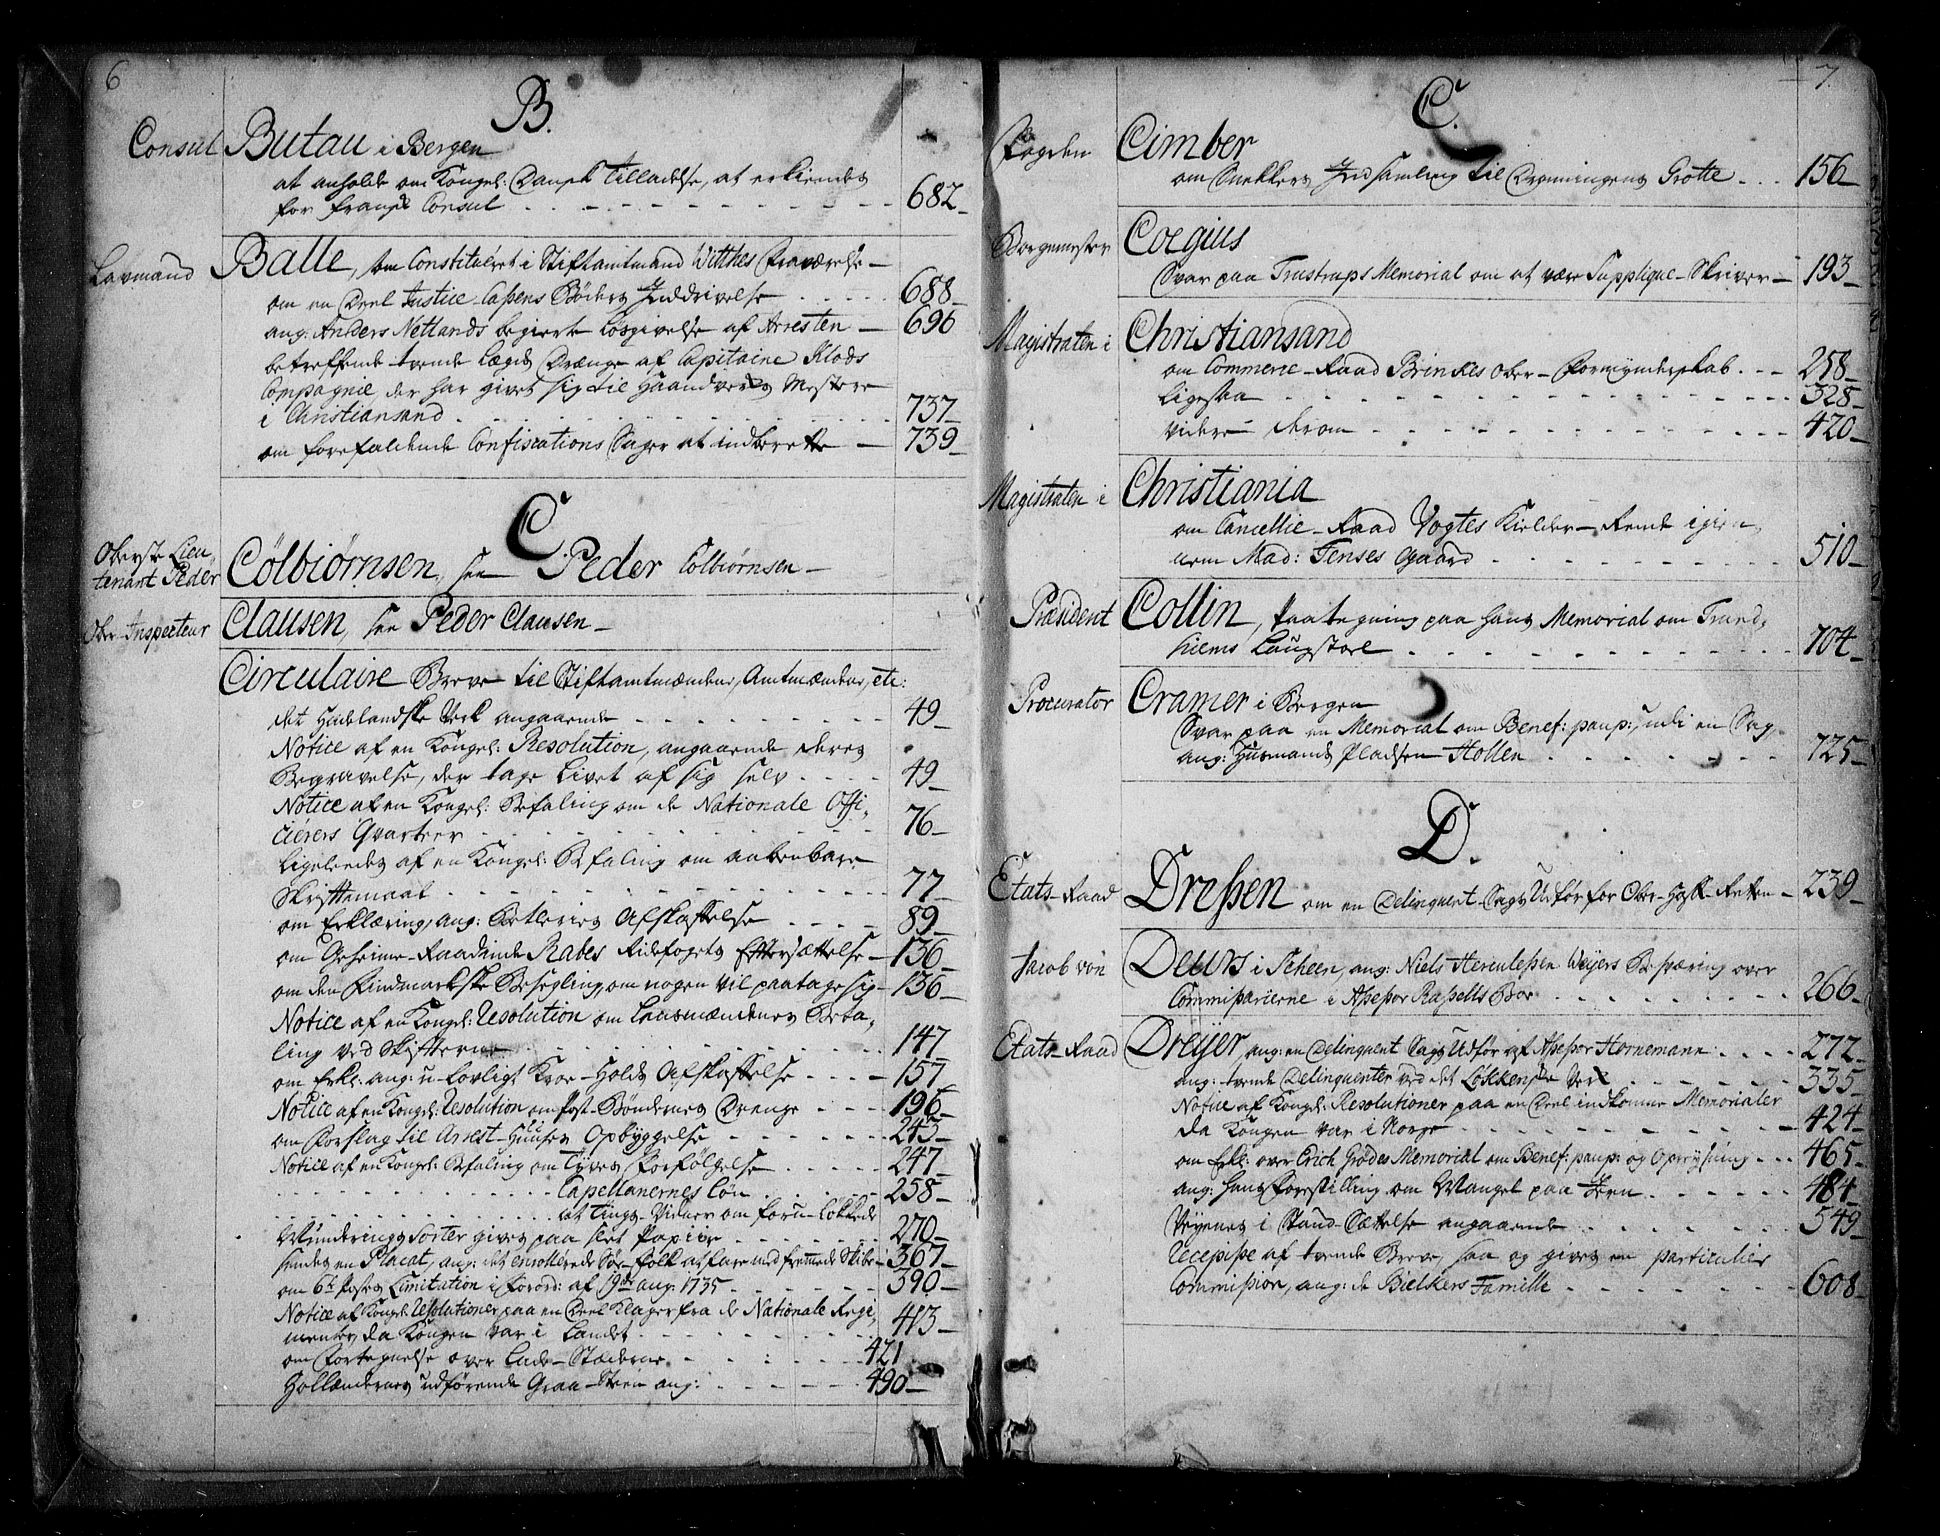 6
B.
Consul Butau i Bergen
at anholde om Kongel: Dansk Tilladelse, at erkiendes
for fransk Consul 682
Lavmand Balle, som Constitueret i Stiftamtmand Witthes Fraværelse
om en Deel Justice Casens Bøders Inddrivelse 688
ang: Anders Netlands begierte Løsgivelse af Arresten 696
betreffende tvende Lægds Drænge af Capitaine Klods
Compagnie, der har givet sig til Haandverks Mestere
i Christiansand 737
om forefaldende Confiscations Sager at indberette 739
C.
Oberste Lieu,
tenant Peder Colbiørnsen, see Peder Colbiørnsen
Ober-Inspecteur Clausen, see Peder Clausen
Circulaire Breve til Stiftamtmændene, Amtmændene, etc:
det Hadelandske Verk angaaende 49
Notice af en Kongel: Resolution, angaaende deres
Begravelse, der tage Livet af sig selv 49
Notice af en Kongel: Befaling om de Nationale Offi,
cierers Qvarteer 76
Ligeledes af en Kongel: Befaling om aabenbare
Skriftemaal 77
om Erklæring, ang: Betleries Afskaffelse 89
om Geheime-Raadinde Rabes Ridefogets Eftersættelse 136
om den Findmarkske Besegling, om nogen vil paatage sig 136
Notice af en Kongel: Resolution om Lensmændenes Beta,
ling ved Skifterne 147
om Erkl: ang: u-lovligt Kroe-Holds Afskaffelse 157
Notice af en Kongel: Resolution om Post-Bøndernes Drenge 196
om Forslag til Arrest-Huuses Opbyggelse 243
Notice af en Kongel: Befaling om Tyves Forfølgelse 247
Capellanernes Løn 258
at Tings-Vidner om
Vurderings Sorter gives paa slet Papiir 270
Sendes en Placat, ang: det enrollerede Søe-Folk at fare med fremmede Skibe 367
om 6te Posts Limitation i Forord: af 19de aug: 1735 390
Notice af Kongel: Resolutioner paa en Deel Klager fra de Nationale Regi,
menter, da Kongen var i Landet 413
om Fortegnelse over Lade-Stæderne 421
Hollændernes udførende Graa-Steen ang: 490
7.
C.
Fogden Cimber
om Snekkers Indsamling til Dronningens Grotte 156
Borgemester Coegius
Svar paa Trustrups Memorial om at være Supplique-Skriver 193
Magistraten i Christiansand
om Commerce-Raad Brinkes Ober-Formynderskab 258
Ligesaa 328
videre derom 420
Magistraten i Christiania
om Cancellie-Raad Vogtes Kielder-Rende igien,
nem Mad: Jenses Gaard 510
Præsident Collin, Paategning paa hans Memorial om Trund,
hiems Laugstoel 704
Procurator Cramer i Bergen
Svar paa en Memorial om Benef: paup:, udi en Sag,
ang: Husmands Pladsen Hollen 725
D.
Etats-Raad Dreßen om en Delinquent-Sags Udfør for Ober-Hof-Retten 239
Jacob von Deurs i Scheen, ang: Niels Herculeßen Weyers Besværing over
Commißarierne i Aßeßor Raßells Boe 266
Etats-Raad Dreyer, ang: en Delinquent Sags Udfør af Aßeßor Hornemann 272
ang: tvende Delinquenter ved det Løkkenske Verk 335
Notice af Kongel: Resolutioner paa en Deel indkomne Memorialer
da Kongen var i Norge 424
om Erkl: over Erich Grødes Memorial om Benef: paup: og Opreysning 465
ang: hans Forestilling om Mangel paa Jern 484
Veyenes i Stand-Sættelse angaaende 549
Recepiße af tvende Breve, saa og gives en particulier
Commißion, ang: de Bielkers Familie 608